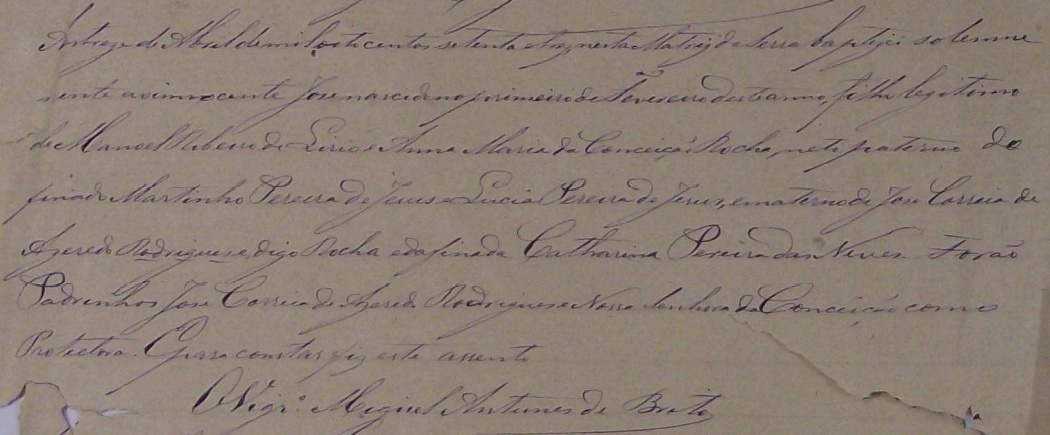 Aos treze de Abril de mil oitocentos setenta e tres nesta Matriz da Serra baptizei solemne
mente ao innocente José nascido no primeiro de Fevereiro deste anno, filho legitimo
de Manoel Ribeiro de Lirio e Anna Maria da Conceição Rocha, neto paterno do
finado Martinho Pereira de Jesus e Lucia Pereira de Jesus, e materno de José Correia de
Azeredo Rodrigues e, digo Rocha e da finada Catharina Pereira das Neves. Forão
Padrinhos José Correia de Azeredo Rodrigues e Nossa Senhora da Conceição como
Protectora. E para constar fiz este assento
O Vigr.º Miguel Antunes de Brito